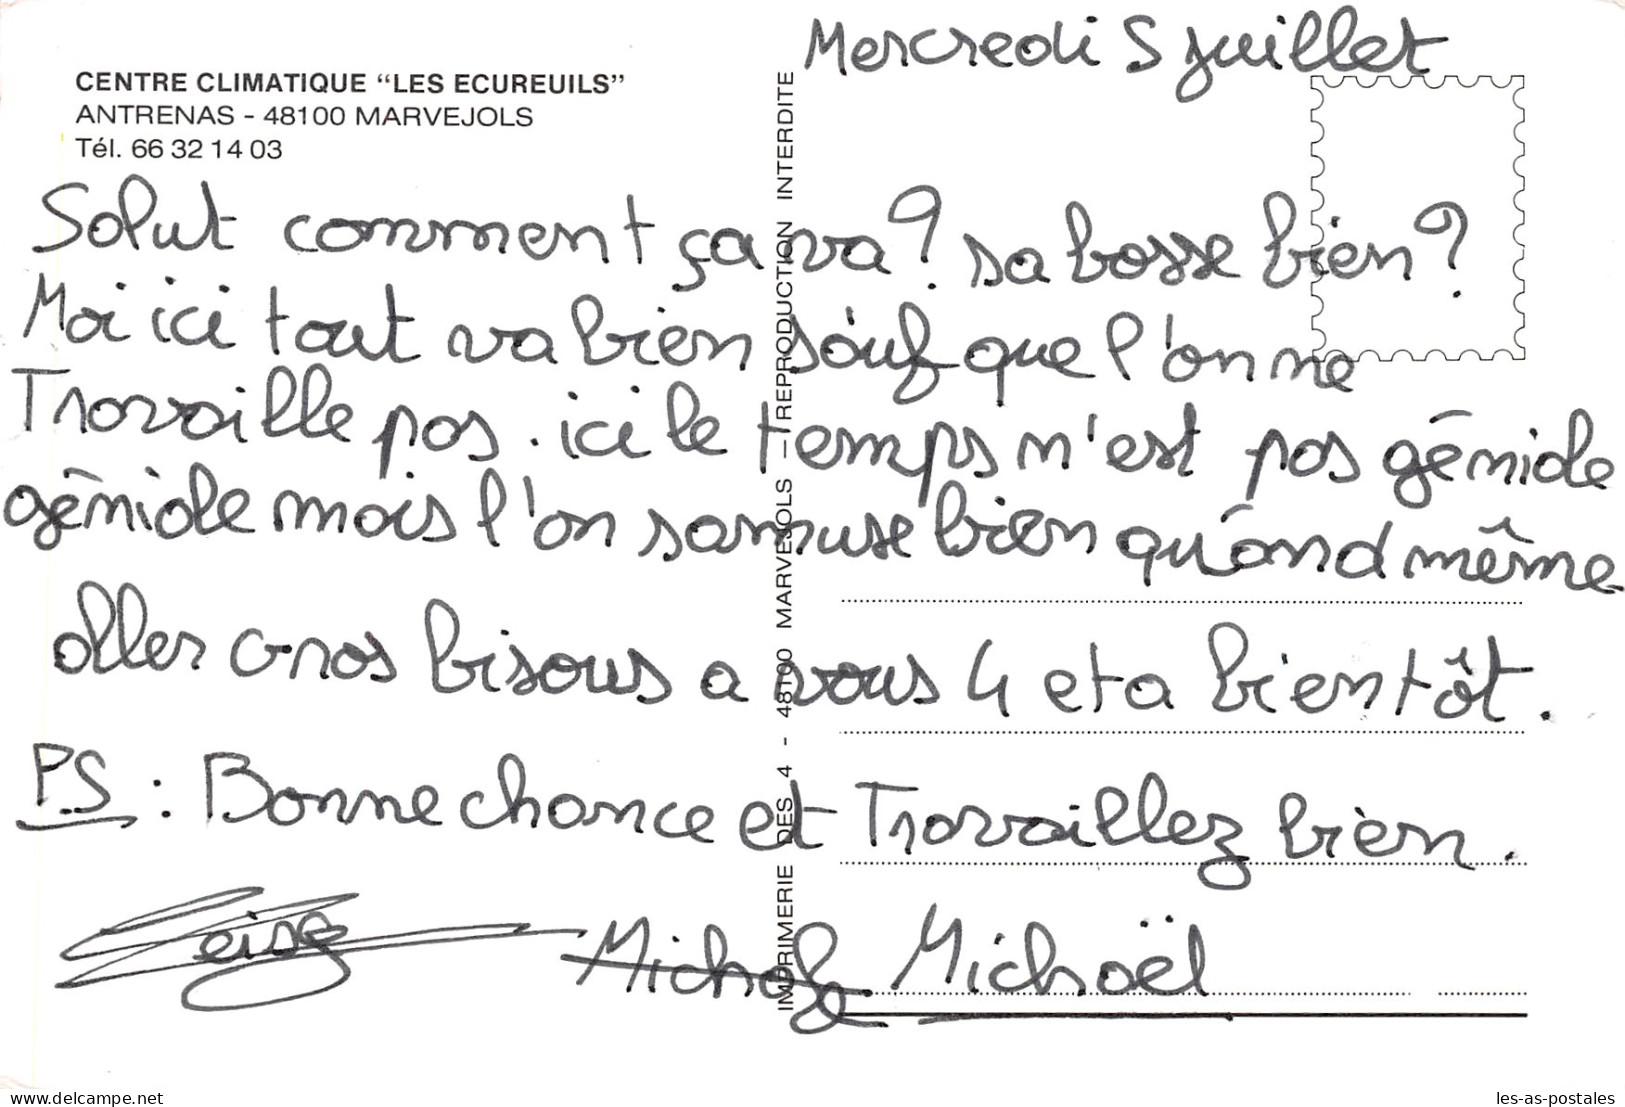 Mercredi 5 juillet
CENTRE CLIMATIQUE “LES ECUREUILS”
ANTRENAS - 48100 MARVEJOLS
Tél. 66 32 14 03
Salut comment ça va ? sa bosse bien ?
Moi ici tout va bien sauf que l'on ne
Travaille pas. ici le temps n'est pas géniale
géniale mais l'on samuse bien quand même
aller gros bisous a vous 4 et a bientôt.
PS : Bonne chance et Travaillez bien.
Michaël
IMPRIMERIE DES 4 - 48100 MARVEJOLS - REPRODUCTION INTERDITE
www.delcampe.net
les-as-postales